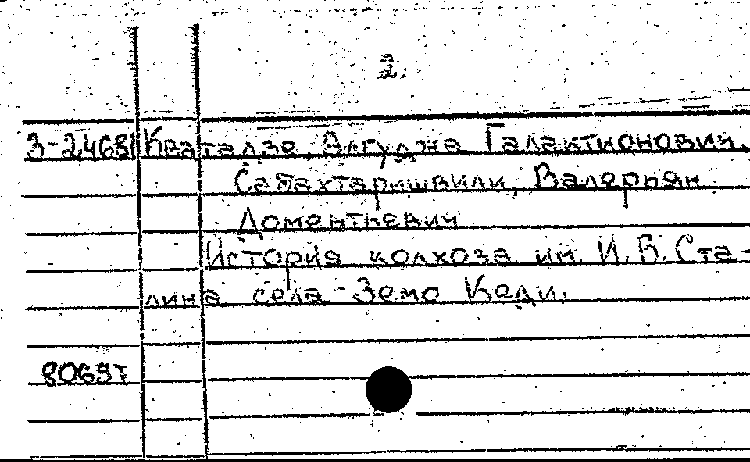 2.
3-24681 Кватадзе, Элгуджа Галактионович,
Сабахтаришвили, Валерьян
Доментьевич
История колхоза им. И.В.Ста-
лина села Земо Кеди.
80697